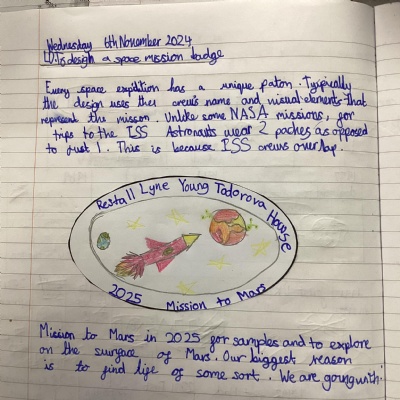 Wednesday 6th November 2024
LO: To design a space mission badge
Every space expdition has a unique paton. Typically
the design uses ther crew's name and visual elements that
represent the misson. Unlike some NASA missions, for
trips to the ISS Astronauts wear 2 paches as opposed
to just 1. This is because ISS crews overlap.
Restall Lyne Young Todorova House
2025 Mission to Mars
Mission to Mars in 2025 for samples and to explore
on the surface of Mars. Our biggest reason
is to find life of some sort. We are going with